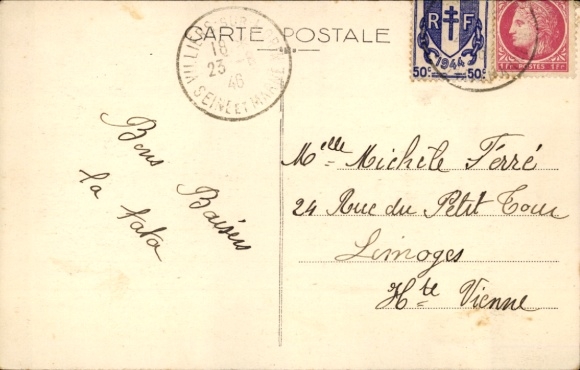 CARTE POSTALE
RF
1944
50c 50c
1 Fr POSTES 1 Fr
VILLIERS-SUR-
18
23 -8
46
SEINE ET MARNE
Bons Baisers
la tata
Melle Michèle Ferré
24 Rue du Petit Tour
Limoges
Hte Vienne